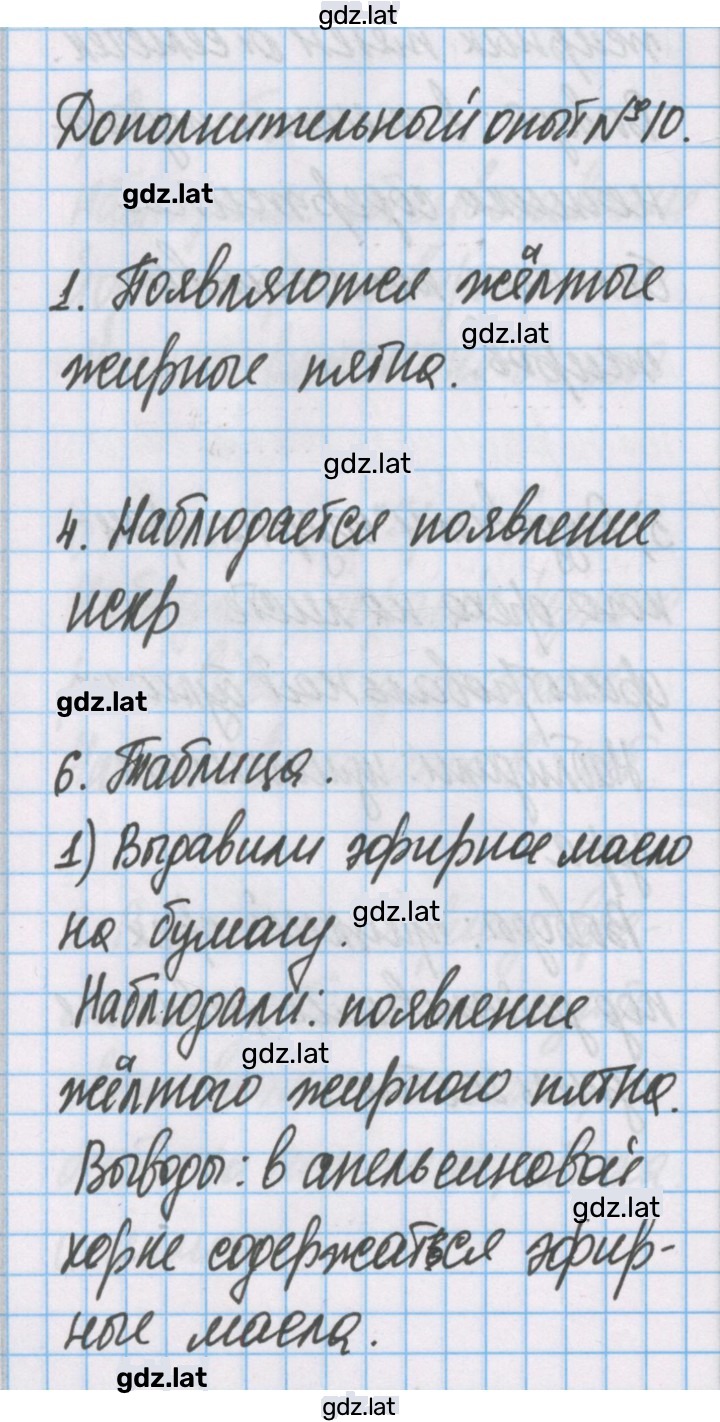 gdz.lat
Дополнительный опыт №10.
gdz.lat
1. Появляются жёлтые
gdz.lat
жирные пятна.
gdz.lat
4. Наблюдается появление
искр
gdz.lat
6. Таблица.
1) Выдавили эфирное масло
gdz.lat
на бумагу.
Наблюдали: появление
gdz.lat
жёлтого жирного пятна.
Выводы: в апельсиновой
gdz.lat
корке содержаться эфир-
ные масла.
gdz.lat
gdz.lat